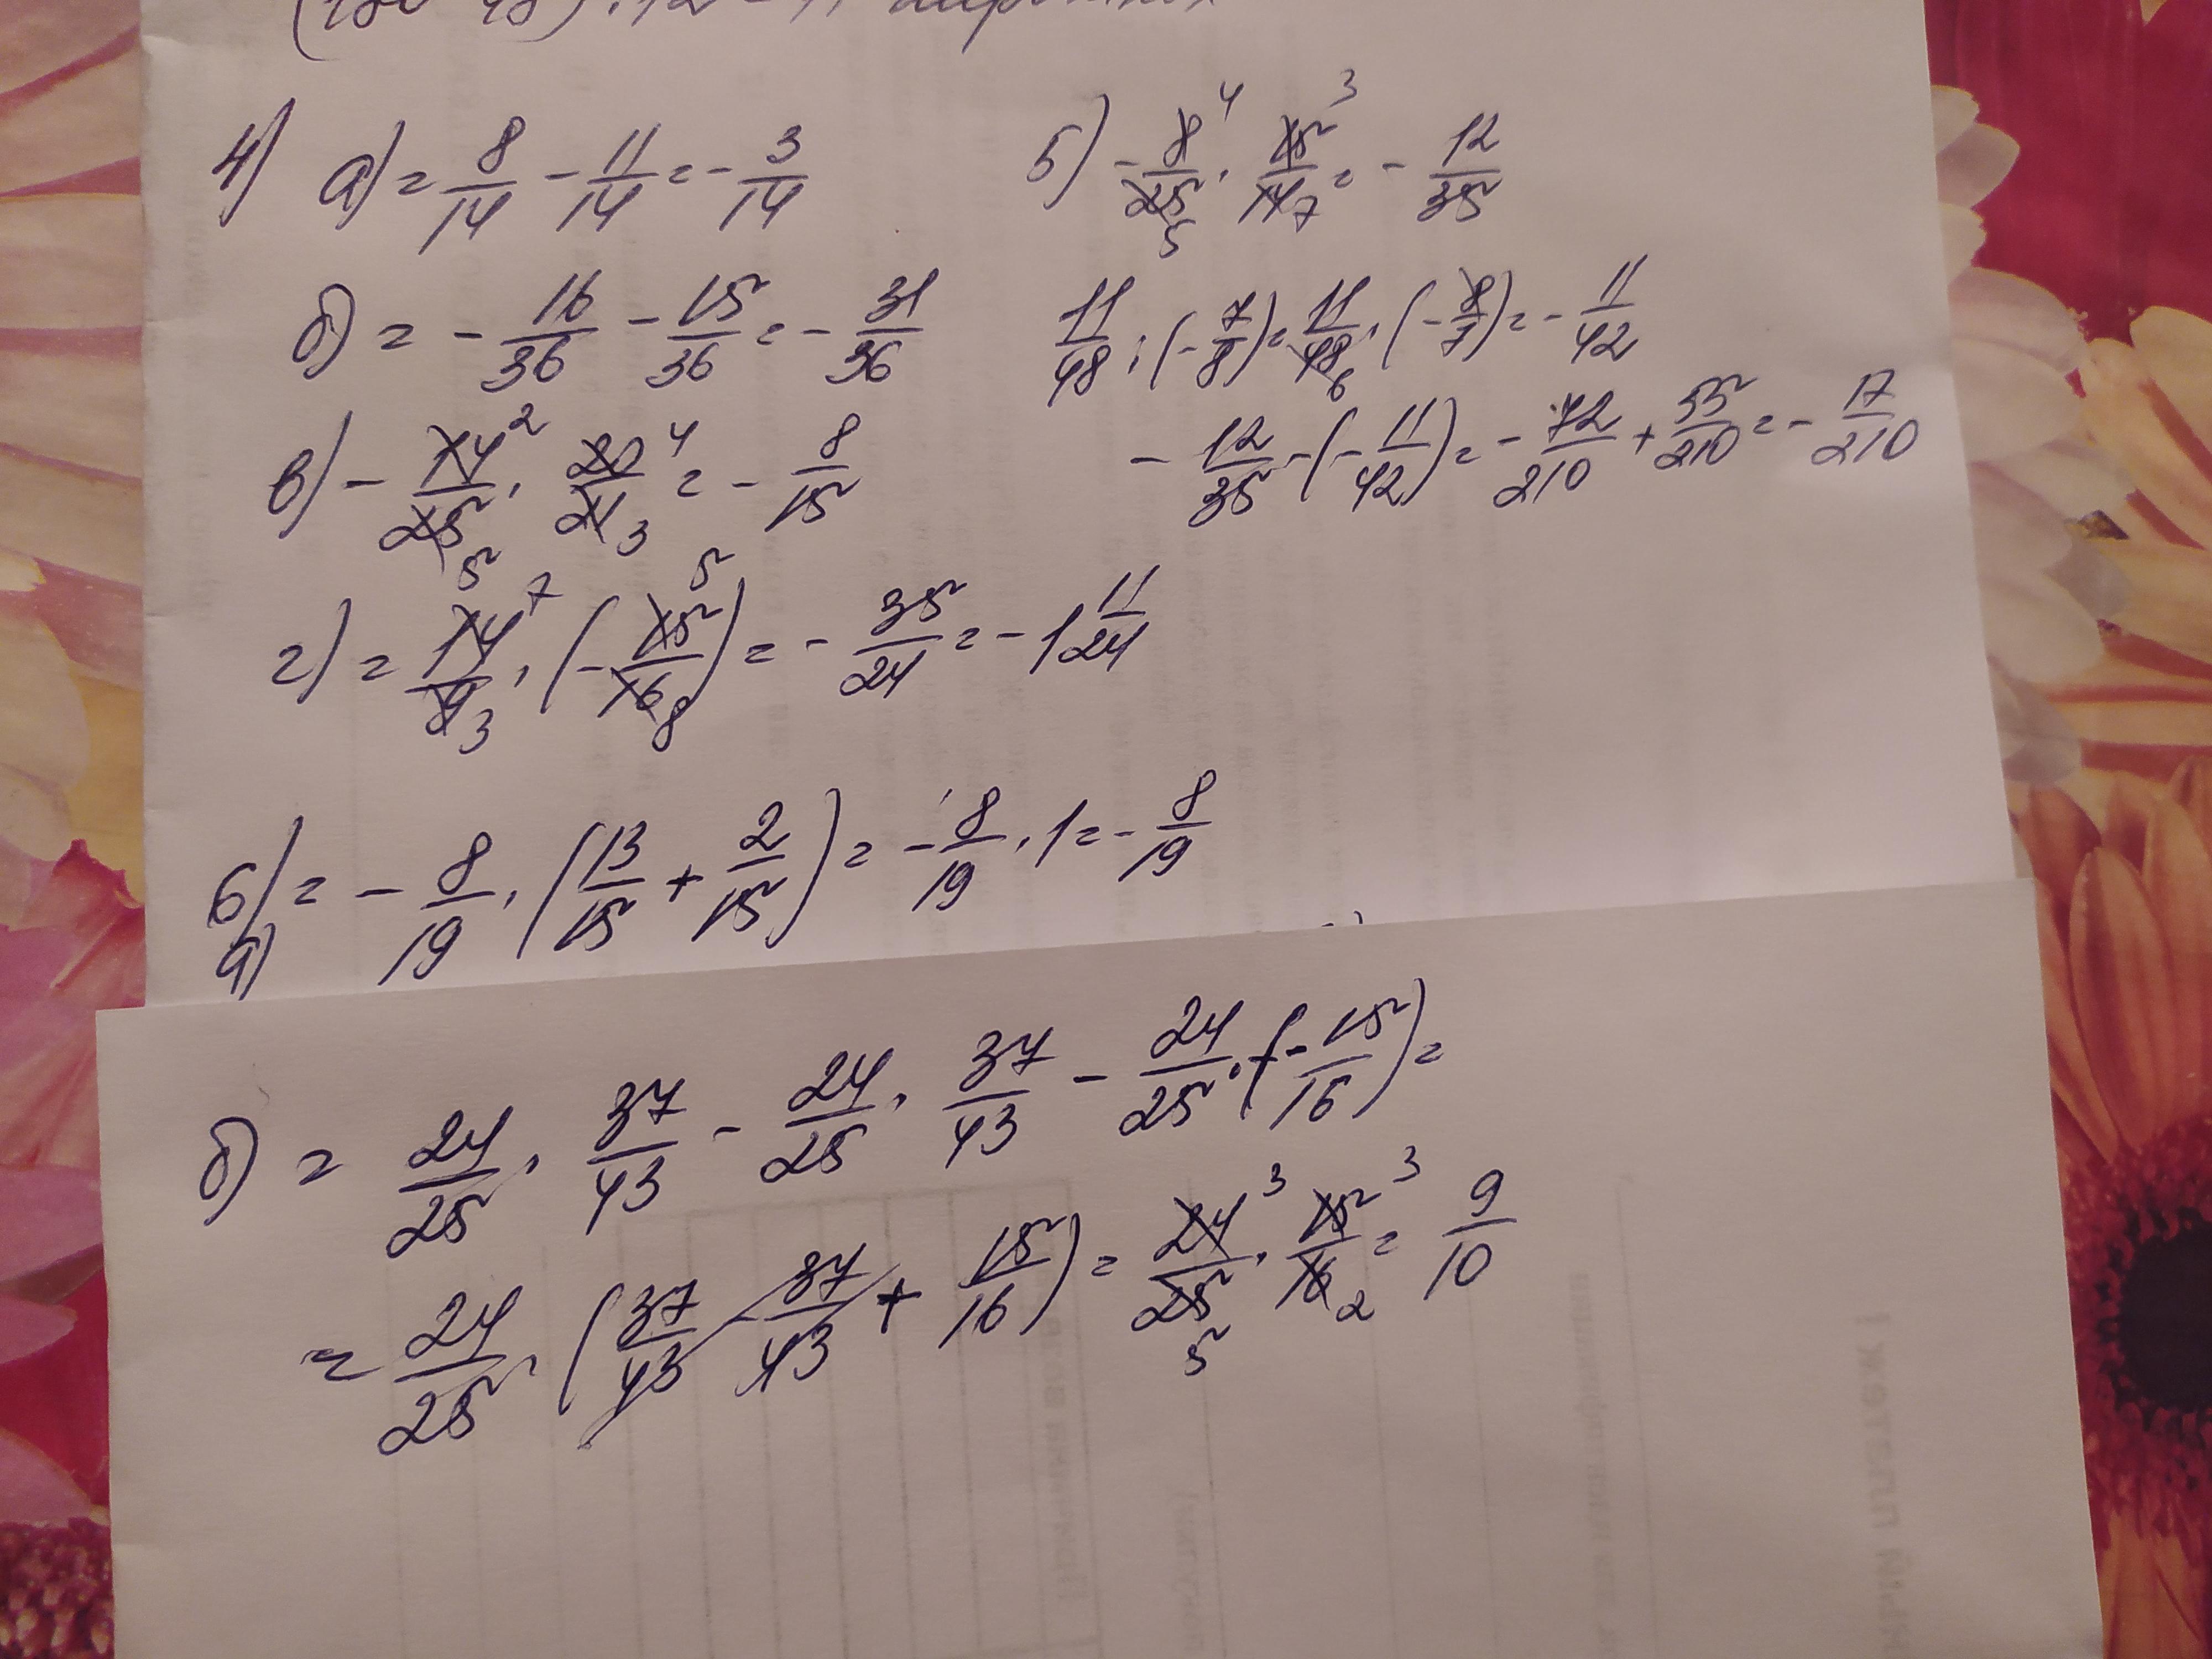 4) а) = 8/14 - 11/14 = - 3/14
б) = - 16/36 - 15/36 = - 31/36
в) - 14/25 · 20/21 = - 8/15
2 4 5 3
г) = 14/9 · (- 15/16) = - 35/24 = - 1 11/24
7 5 3 8
5) - 8/25 · 15/14 = - 12/35
4 3 5 7
11/48 : (- 7/8) = 11/48 · (- 8/7) = - 11/42
6
- 12/35 - (- 11/42) = - 72/210 + 55/210 = - 17/210
6) = - 8/19 · (13/15 + 2/15) = - 8/19 · 1 = - 8/19
а)
б) = 24/25 · 37/43 - 24/25 · 37/43 - 24/25 · (- 15/16) =
= 24/25 · (37/43 - 37/43 + 15/16) = 24/25 · 15/16 = 9/10
3 3 5 2